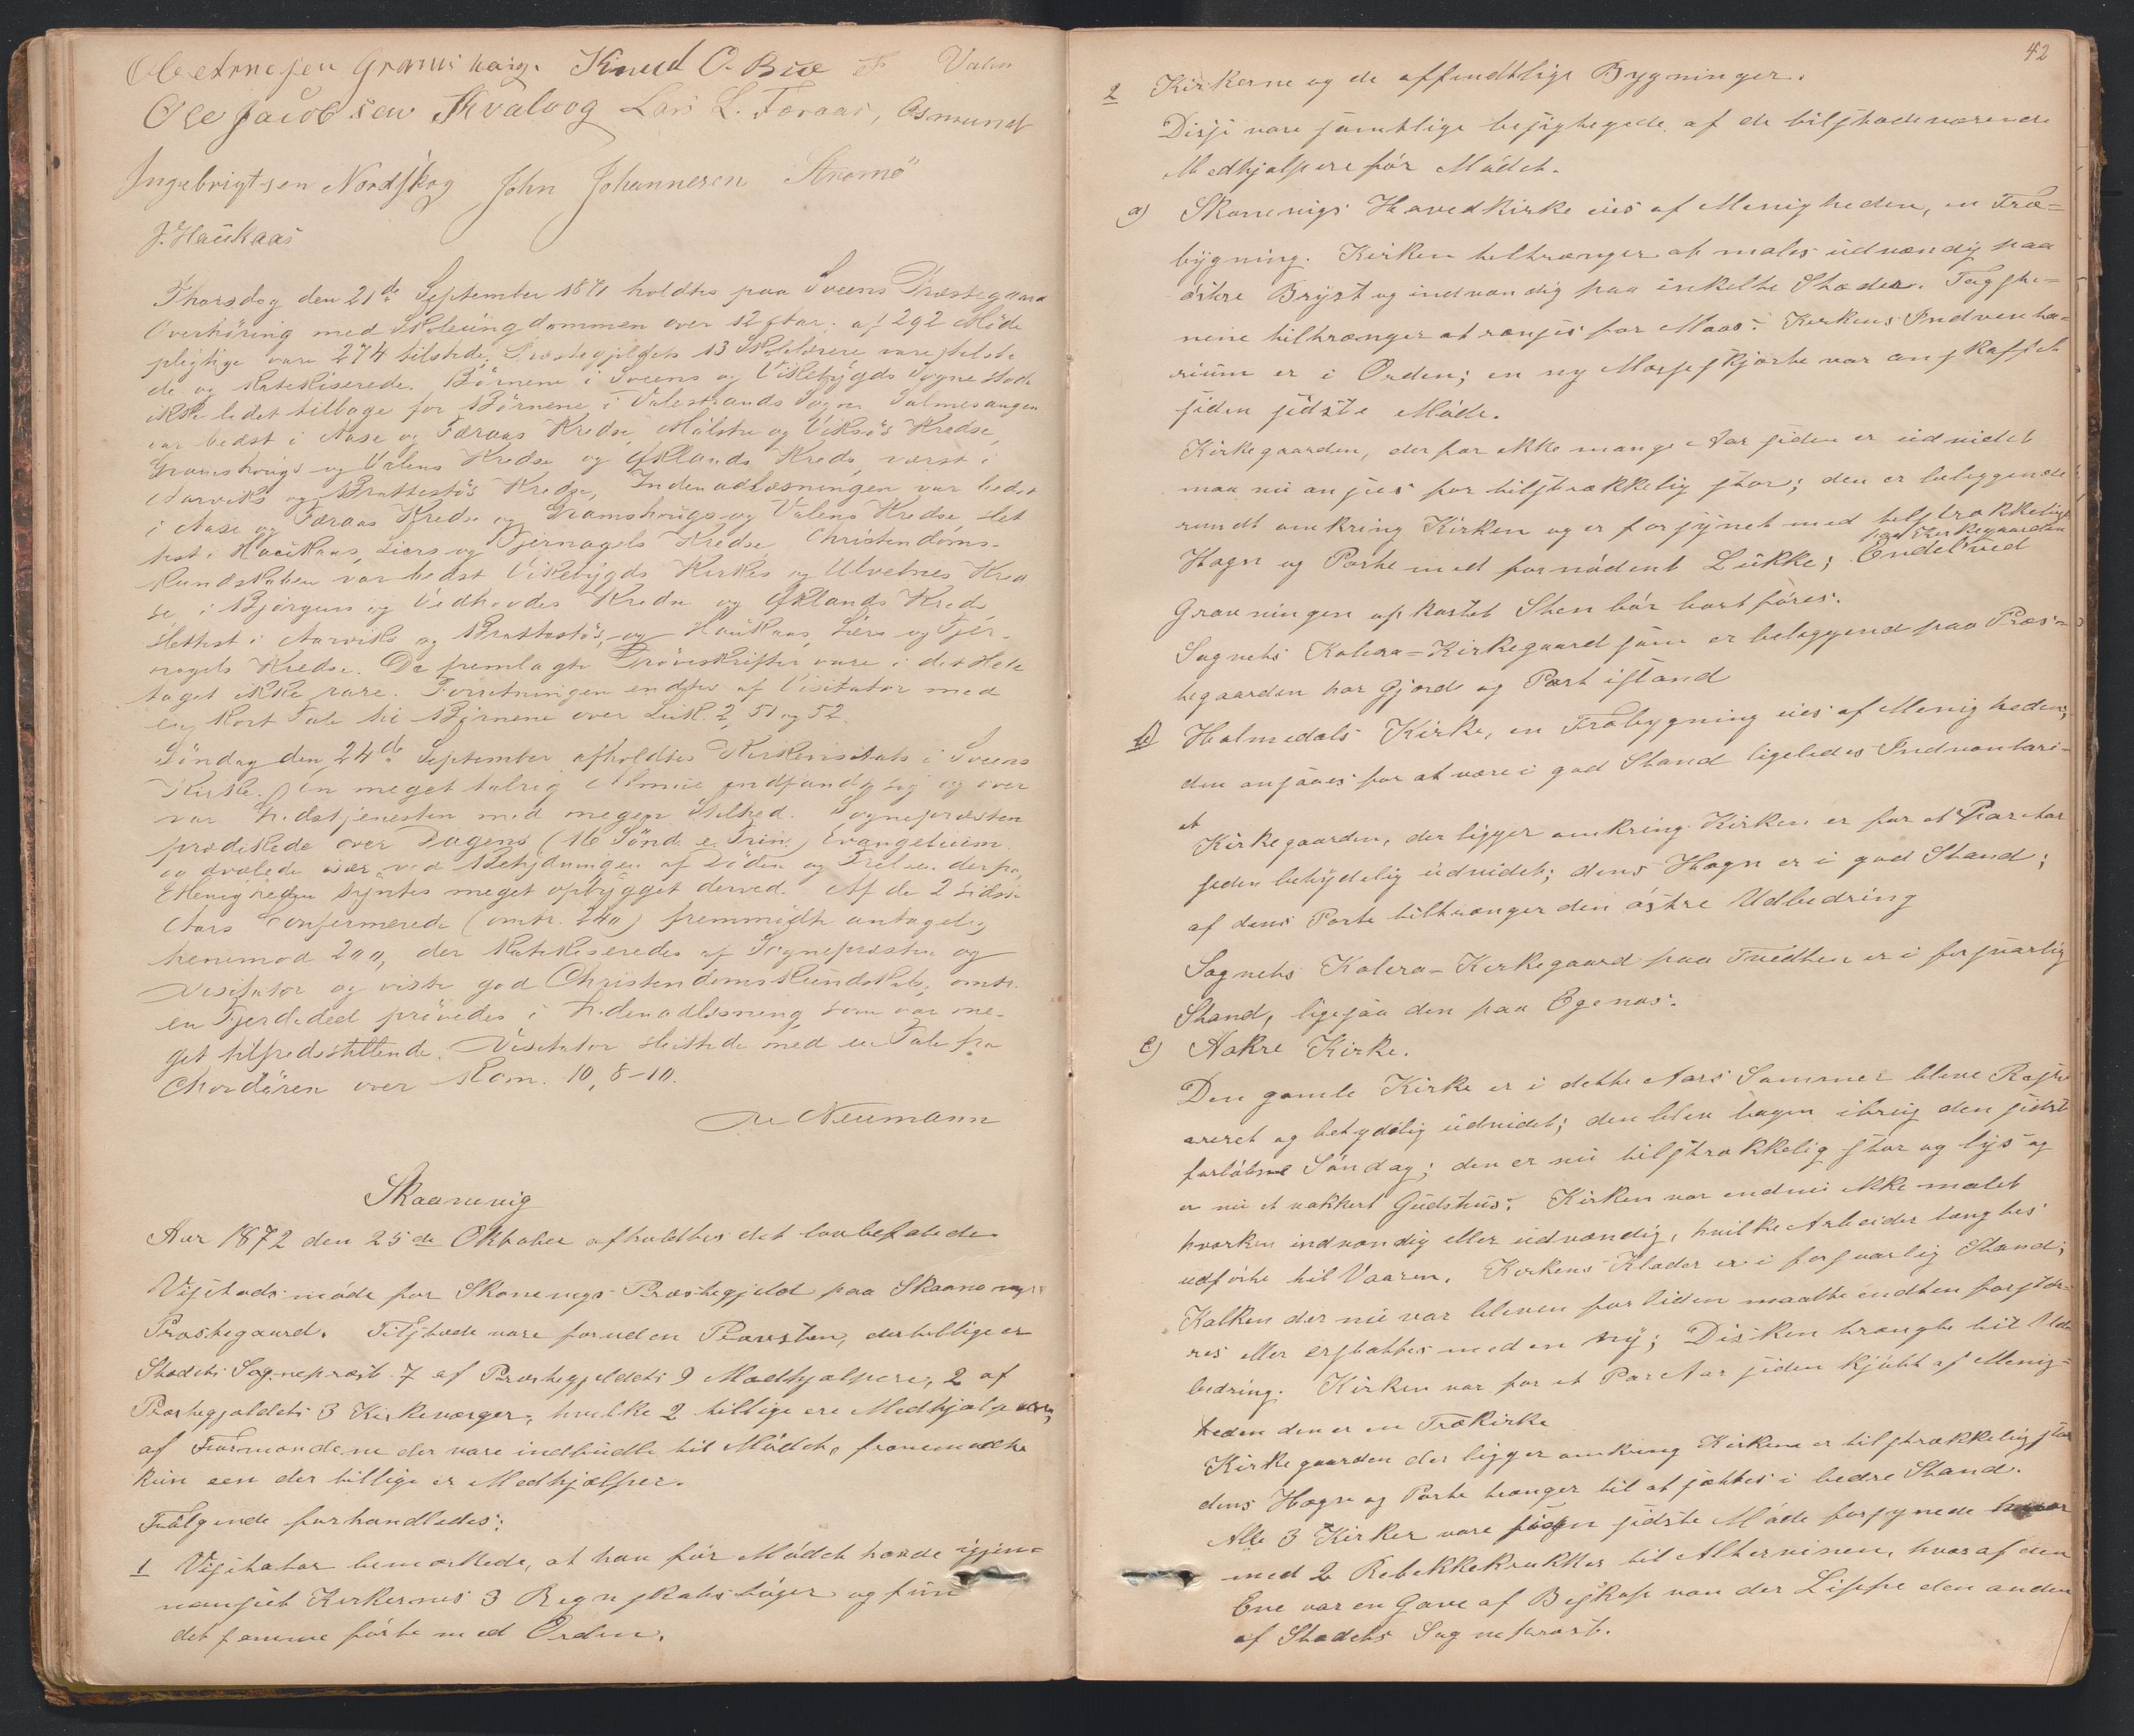 Ole Arnesen Gramshoug. Knud O. Bue Valen
Ole Jacobsen Kvaloog Lars L. Færaas, Osmund
Ingebrigtsen Nordskog John Johannesen Strømø
J. Haukaas
Thorsdag den 21de September 1871 holdtes paa Sveens Præstegaard
Overhöring med Skoleungdommen over 12 Aar; af 292 Möde
pligtige vare 274 tilstede. Præstegjeldets 13 Skolelærere vare tilste
de og katekiserede. Börnene i Sveens og Vikebygds Sogne stode
ikke lidet tilbage for Börnene i Valestrands Sogn. Salmesangen
var bedst i Aase og Færaas Kredse, Mölstre og Viksös Kredse,
Gramshougs og Valens Kredse og Öklands Kreds, værst i
Aarviks og Brattestös Kredse, Indenadlæsningen var bedst
i Aase og Færaas Kredse og Gramshougs og Valens Kredse, slet
test i Haukaas, Liers og Tjernagels Kredse, Christendoms-
kundskaben var bedst Vikebygds Kirkes og Ulvetnes Kred
se, i Bjørgens og Vedhovdes Kredse og Öklands Kreds
slettest i Aarviks og Brattestös, og Haukaas, Liers og Tjer-
nagels Kredse. De fremlagte Pröveskrifter vare i det Hele
taget ikke rare. Forretningen endtes af Visitator med
en kort Tale til Börnene over Luk. 2, 51 og 52.
Söndag den 24de September afholdtes Kirkevisitats i Sveens
Kirke. En meget talrig Almue indfandt sig og over
var Gudstjenesten med megen Stilhed. Sognepræsten
prædikede over Dagens (16 Sönd. e. Trin.) Evangelium
og dvælede især ved Betydningen af Döden og Frelsen derfra,
Menigheden syntes meget opbygget derved. Af de 2 sidste
Aars Confirmerede (omtr. 240) fremmödte antagelig
henimod 200, der katekiseredes af Sognepræsten og
Visitator og viste god Christendomskundskab; omtr.
en Fjerdedeel prövedes i Indenadlæsning som var me-
get tilfredsstillende. Visitator sluttede med en Tale fra
Chordören over Rom. 10, 8-10.
Neumann
Skaanevig
Aar 1872 den 25de Oktober afholdtes det lovbefalede
Visitadsmöde for Skonevigs Præstegjeld paa Skaanevigs
Præstegaard. Tilstede vare foruden Provsten, der tillige er
Stedets Sognepræst 7 af Præstegjeldets 9 Medhjælpere, 2 af
Præstegjeldets 3 Kirkeværger, hvilke 2 tillige ere Medhjælpere,
af Formændene der vare indbudte til Mödet, fremmødte
kun een der tillige er Medhjælper.
Fölgende forhandledes:
1 Visitator bemærkede, at han för Mödet havde igjen-
nemseet Kirkernes 3 Regnskabsböger og fundet
det samme förte med Orden.
42
2 Kirkerne og de offentlige Bygninger.
Disse vare samtlige besigtigede af de tilstedeværende
Medhjælpere för Mödet.
a) Skonevigs Hovedkirke eies af Menigheden, en Træ-
bygning. Kirken tiltrænger at males udvændig paa
östre Bryst og indvændig paa enkelte Steder. Tagste-
nene tiltrænger at renses for Maas. Kirkens Indventa-
rium er i Orden; en ny Messeskjorte var anskaffet
siden sidste Möde.
Kirkegaarden, der for ikke mange Aar siden er udvidet
maa nu ansees for tilstrækkelig stor; den er beliggende
rundt omkring Kirken og er forsynet med tilstrækkeligt
Hegn og Porte med fornödent Lukke; Endel ved
paa Kirkegaarden
Gravningen opkastet Sten bör bortföres.
Sognets Kolera-Kirkegaard som er beliggende paa Præs-
tegaarden har Gjerde og Port istand
b) Holmedals Kirke, en Træbygning eies af Menigheden;
den ansaaes for at være i god Stand ligeledes Indventari-
et
Kirkegaarden, der ligger omkring Kirken er for et Par Aar
siden betydelig udvidet; dens Hegn er i god Stand;
af dens Porte tiltrænger den östre Udbedring
Sognets Kolera-Kirkegaard paa Tvedten er i forsvarlig
Stand, ligesaa den paa Egenæs.
c) Aakre Kirke.
Den gamle Kirke er i dette Aars Sommer bleve Repa
reret og betydelig udvidet; den blev tagen ibrug den sidst
forlöbne Söndag; den er nu tilstrækkelig stor og lys og
er nu et vakkert Gudshus. Kirken var endnu ikke malet
hverken indvændig eller udvændig, hvilke Arbeider tænktes
udförte til Vaaren. Kirkens Klæder er i forsvarlig Stand;
Kalken der nu var bleven for liden maatte endten forstör-
res eller erstattes med en ny; Disken trængte til Udbe
bedring. Kirken var for et Par Aar siden kjöbt af Menig-
heden den er en Trækirke
Kirkegaarden der ligger omkring Kirken er tilstrækkelig stor
dens Hegn og Porte trænger til at sættes i bedre Stand.
Alle 3 Kirker vare siden sidste Möde forsynede
med 2 Rebekkekrukker til Altervinen, hvoraf den
Ene var en Gave af Biskop von der Lippe den anden
af Stedets Sognepræst.